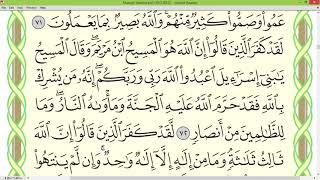 عَمُوا۟ وَصَمُّوا۟ كَثِيرٌ مِّنْهُمْ وَٱللَّهُ بَصِيرٌۢ بِمَا يَعْمَلُونَ ٧١
لَقَدْ كَفَرَ ٱلَّذِينَ قَالُوٓا۟ إِنَّ ٱللَّهَ هُوَ ٱلْمَسِيحُ ٱبْنُ مَرْيَمَ وَقَالَ ٱلْمَسِيحُ
يَٰبَنِىٓ إِسْرَٰٓءِيلَ ٱعْبُدُوا۟ ٱللَّهَ رَبِّى وَرَبَّكُمْ إِنَّهُۥ مَن يُشْرِكْ
بِٱللَّهِ فَقَدْ حَرَّمَ ٱللَّهُ عَلَيْهِ ٱلْجَنَّةَ وَمَأْوَىٰهُ ٱلنَّارُ وَمَا
لِلظَّٰلِمِينَ مِنْ أَنصَارٍ ٧٢ لَّقَدْ كَفَرَ ٱلَّذِينَ قَالُوٓا۟ إِنَّ ٱللَّهَ
ثَالِثُ ثَلَٰثَةٍ وَمَا مِنْ إِلَٰهٍ إِلَّآ إِلَٰهٌ وَٰحِدٌ وَإِن لَّمْ يَنتَهُوا۟